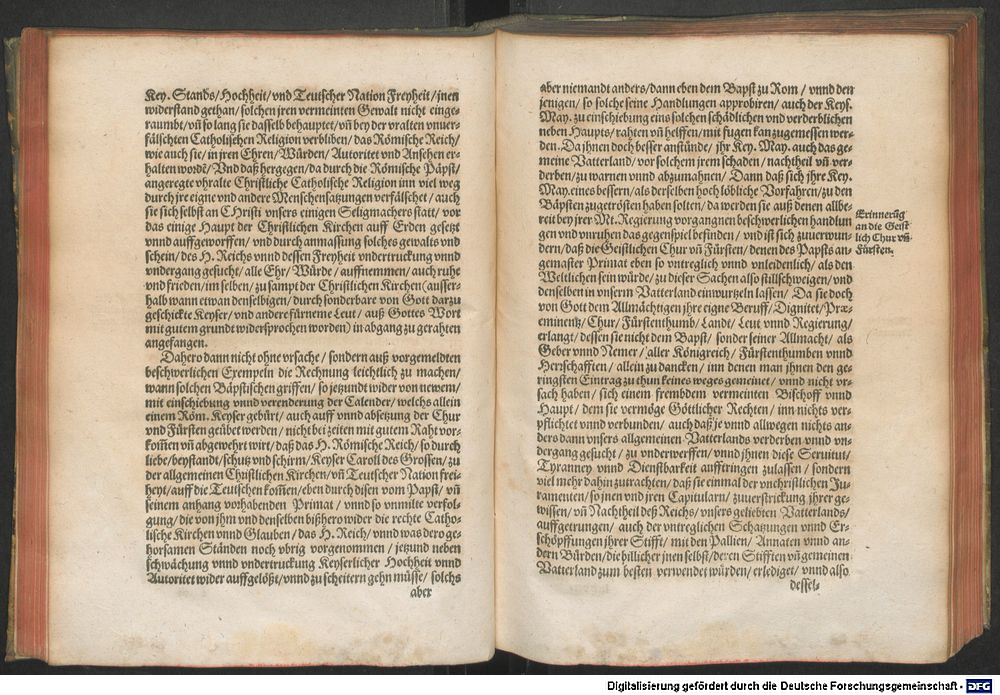 Key. Stands/Hochheit/vnd Teutscher Nation Freyheit/jnen
widerstand gethan/solchen jren vermeinten Gewalt nicht einge-
raumbt/vñ so lang sie dasselb behauptet/vñ bey der vralten vnuer-
fälschten Catholischen Religion verbliben/das Römische Reich/
wie auch sie/in jren Ehren/Würden/Autoritet vnd Ansehen er-
halten wordẽ/Vnd daß hergegen/da durch die Römische Päpst/
angeregte vhralte Christliche Catholische Religion inn viel weg
durch jre eigne vnd andere Menschensatzungen verfälschet/auch
sie sich selbst an CHristi vnsers einigen Seligmachers statt/vor
das einige Haupt der Christlichen Kirchen auff Erden gesetzt
vnnd auffgeworffen/vnd durch anmassung solches gewalts vnd
schein/des H. Reichs vnnd dessen Freyheit vndertruckung vnnd
vndergang gesucht/alle Ehr/Würde/auffnemmen/auch ruhe
vnd frieden/im selben/zu sampt der Christlichen Kirchen (ausser-
halb wann etwan denselbigen/durch sonderbare von Gott darzu
geschickte Keyser/vnd andere fürneme Leut/auß Gottes Wort
mit gutem grundt widersprochen worden) in abgang zu gerahten
angefangen.
Dahero dann nicht ohne vrsache/sondern auß vorgemeldten
beschwerlichen Exempeln die Rechnung leichtlich zu machen/
wann solchen Bäpstischen griffen/so jetzundt wider von newem/
mit einschiebung vnnd verenderung der Calender/welchs allein
einem Röm. Keyser gebürt/auch auff vnnd absetzung der Chur
vnd Fürsten geübet werden/nicht bey zeiten mit gutem Raht vor-
kom̃en vñ abgewehrt wirt/daß das H. Römische Reich/so durch
liebe/beystandt/schutz vnd schirm/Keyser Caroll des Grossen/zu
der allgemeinen Christlichen Kirchen/vñ Teutscher Nation frei-
heyt/auff die Teutschen kom̃en/eben durch disen vom Papst/vñ
seinem anhang vorhabenden Primat/vnnd so vnmilte verfol-
gung/die von jhm vnd denselben bißhero wider die rechte Catho-
lische Kirchen vnnd Glauben/das H. Reich/vnnd was dero ge-
horsamen Ständen noch vbrig vorgenommen/jetzund neben
schwächung vnnd vndertruckung Keyserlicher Hochheit vnnd
Autoritet wider auffgelößt/vnnd zu scheitern gehn müsse/solchs
aber
aber niemandt anders/dann eben dem Bapst zu Rom/vnnd den
jenigen/so solche seine Handlungen approbiren/auch der Keys.
May. zu einschiebung eins solchen schädlichen vnd verderblichen
neben Haupts/rahten vñ helffen/mit fugen kan zugemessen wer-
den. Da jhnen doch besser anstünde/jhr Key. May. auch das ge-
meine Vatterland/vor solchem jrem schaden/nachtheil vñ ver-
derben/zu warnen vnnd abzumahnen/Dann daß sich jhre Key.
May. eines bessern/als derselben hoch löbliche Vorfahren/zu den
Bäpsten zugetrösten haben solten/da werden sie auß denen allbe-
reit bey jrer Mt. Regierung vorgangnen beschwerlichen handlun
gen vnd vnruhen das gegenspiel befinden/vnd ist sich zuuerwun-
dern/daß die Geistlichen Chur vñ Fürsten/denen des Papsts an-
gemaster Primat eben so vntreglich vnnd vnleidenlich/als den
Weltlichen sein würde/zu dieser Sachen also stillschweigen/vnd
denselben in vnserm Vatterland einwurtzeln lassen/Da sie doch
von Gott dem Allmächtigen jhre eigne Beruff/Dignitet/Præ-
eminentz/Chur/Fürstenthumb/Landt/Leut vnnd Regierung/
erlangt/dessen sie nicht dem Bapst/sonder seiner Allmacht/als
Geber vnnd Nemer/aller Königreich/Fürstenthumben vnnd
Herrschafften/allein zu dancken/inn denen man jhnen den ge-
ringsten Eintrag zu thun keines weges gemeinet/vnnd nicht vr-
sach haben/sich einem frembdem vermeinten Bischoff vnnd
Haupt/dem sie vermöge Göttlicher Rechten/inn nichts ver-
pflichtet vnnd verbunden/auch daß je vnnd allwegen nichts an-
ders dann vnsers allgemeinen Vatterlands verderben vnnd vn-
dergang gesucht/zu vnderwerffen/vnnd jhnen diese Seruitut/
Tyranney vnnd Dienstbarkeit aufftringen zulassen/sondern
viel mehr dahin zutrachten/daß sie einmal der vnchristlichen Ju-
ramenten/so jnen vnd jren Capitularn/zuuerstrickung jhrer ge-
wissen/vñ Nachtheil deß Reichs/vnsers geliebten Vatterlands/
auffgetrungen/auch der vntreglichen Schatzungen vnnd Er-
schöpffungen jhrer Stifft/mit den Pallien/Annaten vnnd an-
dern Bürden/die billicher jnen selbst/deren Stifften vñ gemeinen
Vatterland zum besten verwendet würden/erlediget/vnnd also
dessel-
Erinnerũg
an die Geist
lich Chur vñ
Fürsten.
Digitalisierung gefördert durch die Deutsche Forschungsgemeinschaft - DFG